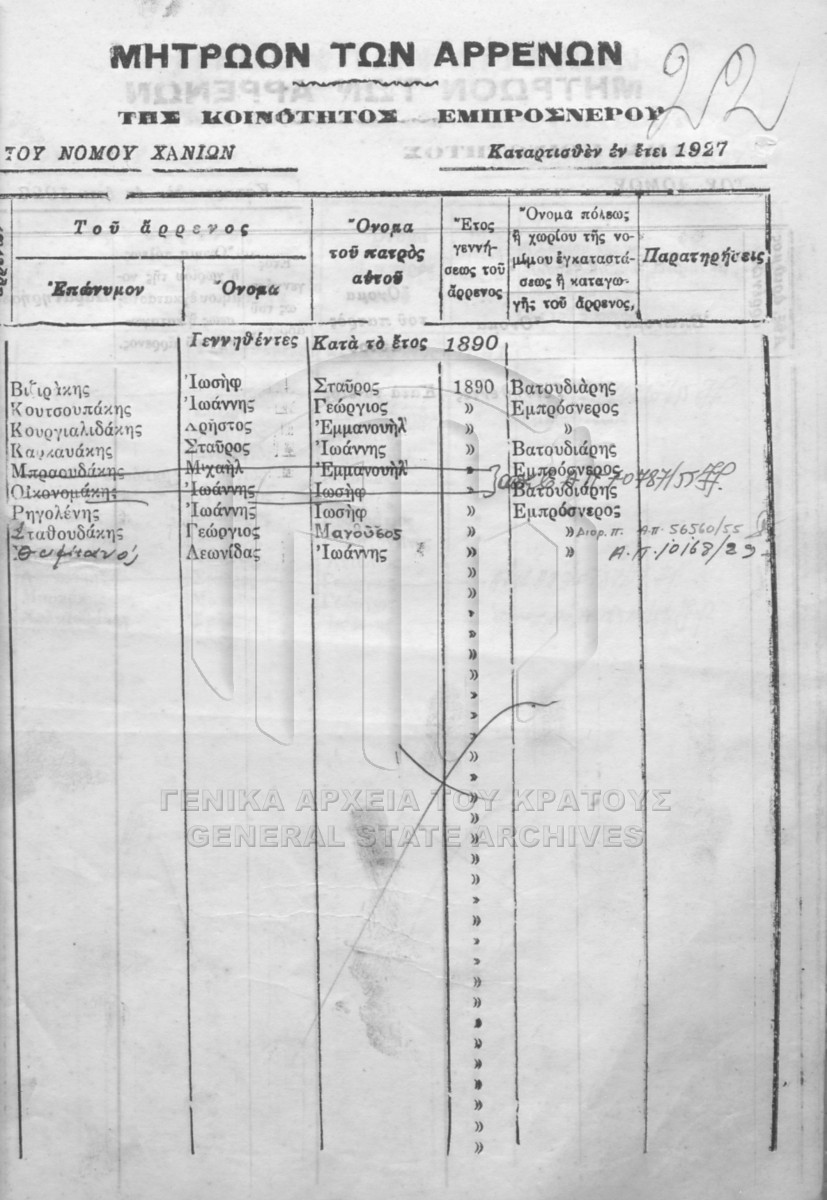 22
ΜΗΤΡΩΟΝ ΤΩΝ ΑΡΡΕΝΩΝ
ΤΗΣ ΚΟΙΝΟΤΗΤΟΣ ΕΜΠΡΟΣΝΕΡΟΥ
ΤΟΥ ΝΟΜΟΥ ΧΑΝΙΩΝ Καταρτισθὲν ἐν ἔτει 1927
Τοῦ ἄρρενος
Ἐπώνυμον Ὄνομα
Ὄνομα
τοῦ πατρὸς
αὐτοῦ
Ἔτος
γεννή-
σεως τοῦ
ἄρρενος
Ὄνομα πόλεως
ἢ χωρίου τῆς νο-
μίμου ἐγκαταστά-
σεως ἢ καταγω-
γῆς τοῦ ἄρρενος,
Παρατηρήσεις
Γεννηθέντες Κατὰ τὸ ἔτος 1890
Βιζιράκης Ἰωσὴφ Σταῦρος 1890 Βατουδιάρης
Κουτσουπάκης Ἰωάννης Γεώργιος » Ἐμπρόσνερος
Κουργιαλιδάκης Χρῆστος Ἐμμανουὴλ » »
Καρκαυάκης Σταῦρος Ἰωάννης » Βατουδιάρης
Μπραουδάκης Μιχαὴλ Ἐμμανουὴλ » Ἐμπρόσνερος
Οἰκονομάκης Ἰωάννης Ἰωσὴφ » Βατουδιάρης 70787/55
Ρηγολένης Ἰωάννης Ἰωσὴφ » Ἐμπρόσνερος
Σταθουδάκης Γεώργιος Μανοῦσος » » Διορ. π. Α.Π. 56560/55
Λεωνίδας Ἰωάννης » » Α.Π. 10168/29
ΓΕΝΙΚΑ ΑΡΧΕΙΑ ΤΟΥ ΚΡΑΤΟΥΣ
GENERAL STATE ARCHIVES